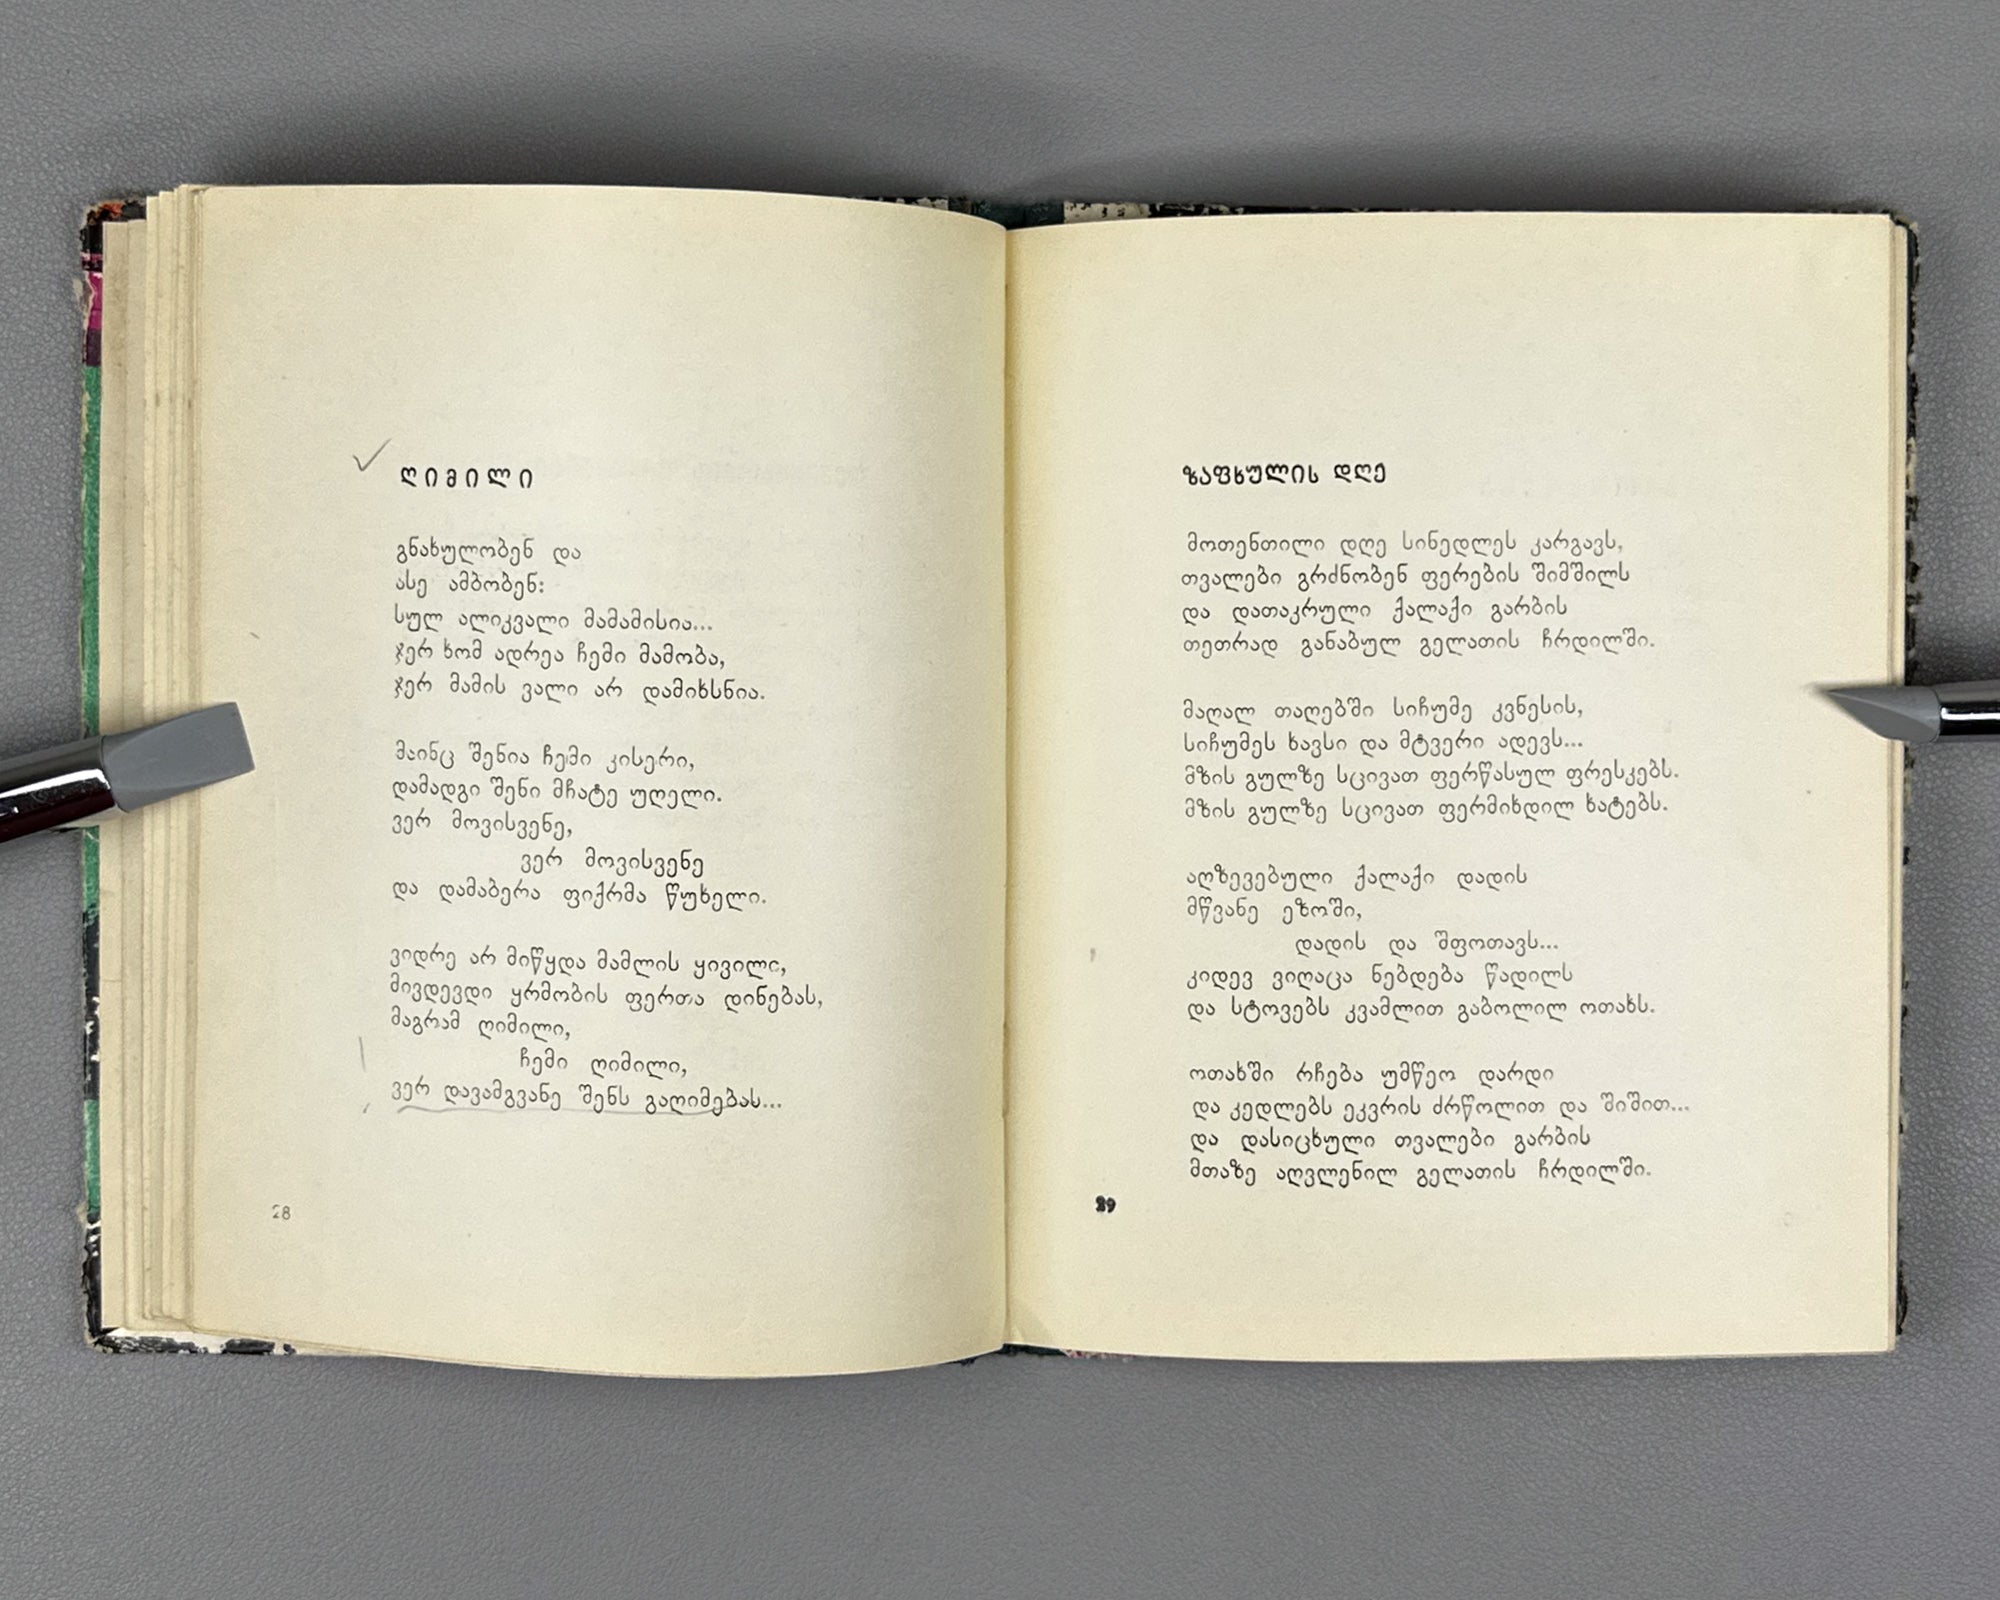 ღიმილი
გნახულობენ და
ასე ამბობენ:
სულ ალიკვალი მამამისია...
ჯერ ხომ ადრეა ჩემი მამობა,
ჯერ მამის ვალი არ დამიხსნია.
მაინც შენია ჩემი კისერი,
დამადგი შენი მჩატე უღელი.
ვერ მოვისვენე,
ვერ მოვისვენე
და დამაბერა ფიქრმა წუხელი.
ვიდრე არ მიწყდა მამლის ყივილი,
მივდევდი ყრმობის ფერთა დინებას,
მაგრამ ღიმილი,
ჩემი ღიმილი,
ვერ დავამგვანე შენს გაღიმებას...
28
ზაფხულის დღე
მოთენთილი დღე სინედლეს კარგავს,
თვალები გრძნობენ ფერების შიმშილს
და დათაკრული ქალაქი გარბის
თეთრად განაბულ გელათის ჩრდილში.
მაღალ თაღებში სიჩუმე კვნესის,
სიჩუმეს ხავსი და მტვერი ადევს...
მზის გულზე სცივათ ფერწასულ ფრესკებს.
მზის გულზე სცივათ ფერმიხდილ ხატებს.
აღზევებული ქალაქი დადის
მწვანე ეზოში,
დადის და შფოთავს...
კიდევ ვიღაცა ნებდება წადილს
და სტოვებს კვამლით გაბოლილ ოთახს.
ოთახში რჩება უმწეო დარდი
და კედლებს ეკვრის ძრწოლით და შიშით...
და დასიცხული თვალები გარბის
მთაზე აღვლენილ გელათის ჩრდილში.
29